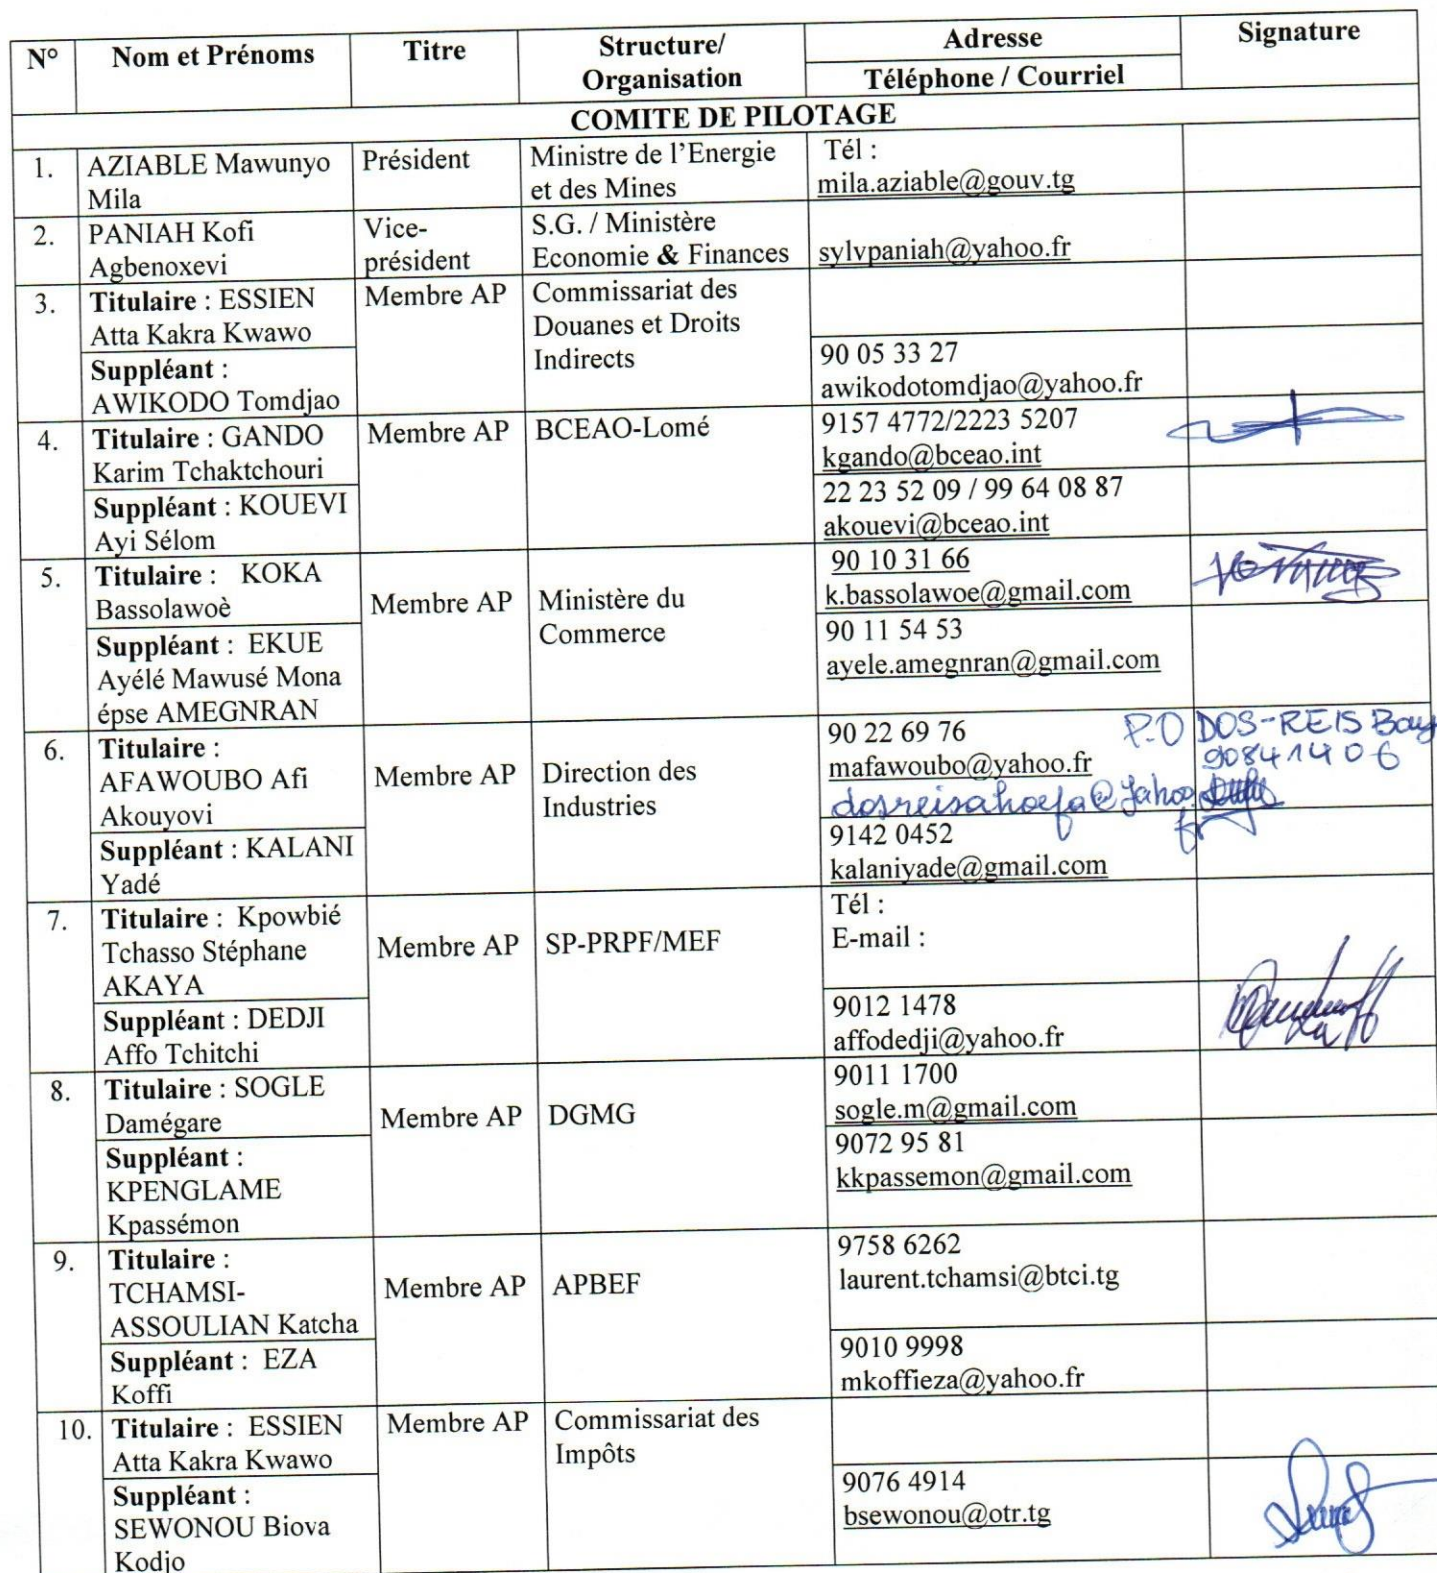 N° Nom et Prénoms Titre Structure/ Organisation Adresse Signature
Téléphone / Courriel
COMITE DE PILOTAGE
1. AZIABLE Mawunyo Mila Président Ministre de l'Energie et des Mines Tél :
mila.aziable@gouv.tg
2. PANIAH Kofi Agbenoxevi Vice-président S.G. / Ministère Economie & Finances sylvpaniah@yahoo.fr
3. Titulaire : ESSIEN Atta Kakra Kwawo Membre AP Commissariat des Douanes et Droits Indirects
Suppléant : AWIKODO Tomdjao 90 05 33 27
awikodotomdjao@yahoo.fr
4. Titulaire : GANDO Karim Tchaktchouri Membre AP BCEAO-Lomé 9157 4772/2223 5207
kgando@bceao.int
Suppléant : KOUEVI Ayi Sélom 22 23 52 09 / 99 64 08 87
akouevi@bceao.int
5. Titulaire : KOKA Bassolawoè Membre AP Ministère du Commerce 90 10 31 66
k.bassolawoe@gmail.com
Suppléant : EKUE Ayélé Mawusé Mona épse AMEGNRAN 90 11 54 53
ayele.amegnran@gmail.com
6. Titulaire : AFAWOUBO Afi Akouyovi Membre AP Direction des Industries 90 22 69 76
mafawoubo@yahoo.fr
P.O DOS-REIS
90841406
dosreisahoefa@yahoo.fr
Suppléant : KALANI Yadé 9142 0452
kalaniyade@gmail.com
7. Titulaire : Kpowbié Tchasso Stéphane AKAYA Membre AP SP-PRPF/MEF Tél :
E-mail :
Suppléant : DEDJI Affo Tchitchi 9012 1478
affodedji@yahoo.fr
8. Titulaire : SOGLE Damégare Membre AP DGMG 9011 1700
sogle.m@gmail.com
Suppléant : KPENGLAME Kpassémon 9072 95 81
kkpassemon@gmail.com
9. Titulaire : TCHAMSI-ASSOULIAN Katcha Membre AP APBEF 9758 6262
laurent.tchamsi@btci.tg
Suppléant : EZA Koffi 9010 9998
mkoffieza@yahoo.fr
10. Titulaire : ESSIEN Atta Kakra Kwawo Membre AP Commissariat des Impôts
Suppléant : SEWONOU Biova Kodjo 9076 4914
bsewonou@otr.tg